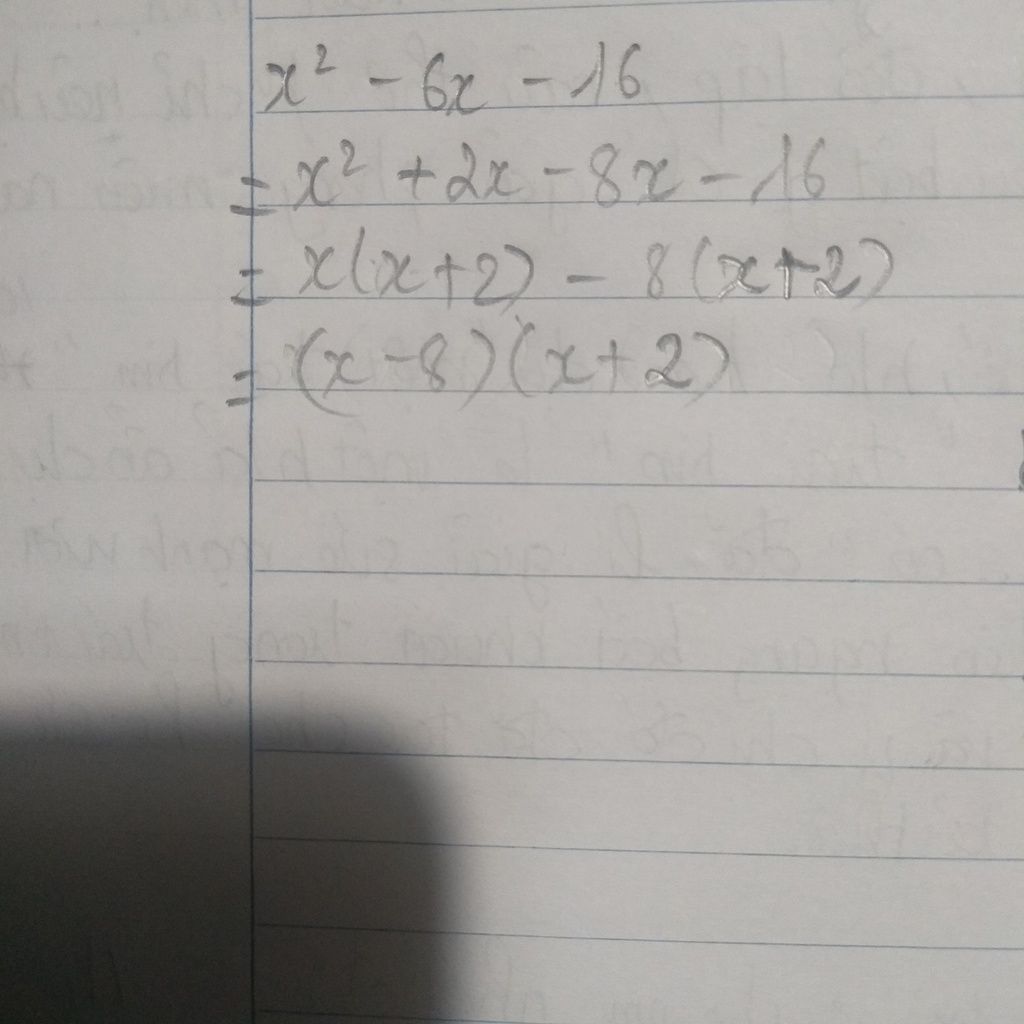 x² - 6x - 16
= x² + 2x - 8x - 16
= x(x+2) - 8(x+2)
= (x-8)(x+2)